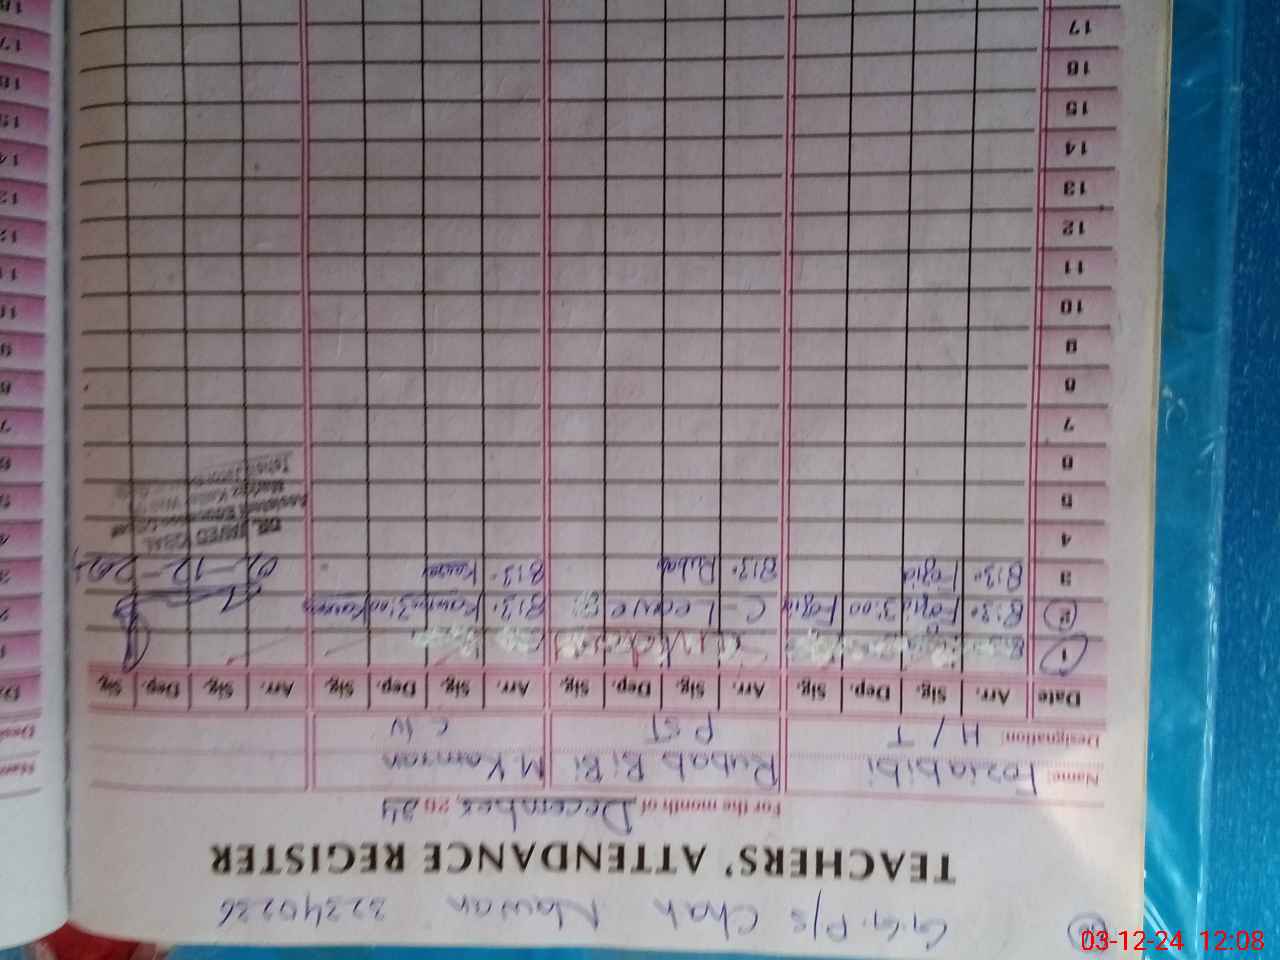 G.G.P/S Chah Nawan 32340236
TEACHERS' ATTENDANCE REGISTER
For the month of December, 2024
Name: Fozia bibi Rubab BiBi M Kamran
Designation: H/T PST C IV
Date Arr. Sig. Dep. Sig. Arr. Sig. Dep. Sig. Arr. Sig. Dep. Sig. Arr. Sig. Dep. Sig.
1
2 8:30 Fozia 3:00 Fozia C-Leave 8:30 3:00
3 8:30 Fozia 8:30 Rubab 8:30 02-12-2024
4
5
6
7
8
9
10
11
12
13
14
15
16
17
DR. JAVED IQBAL
Assistant Education Officer
Markaz
Tehsil
03-12-24 12:08